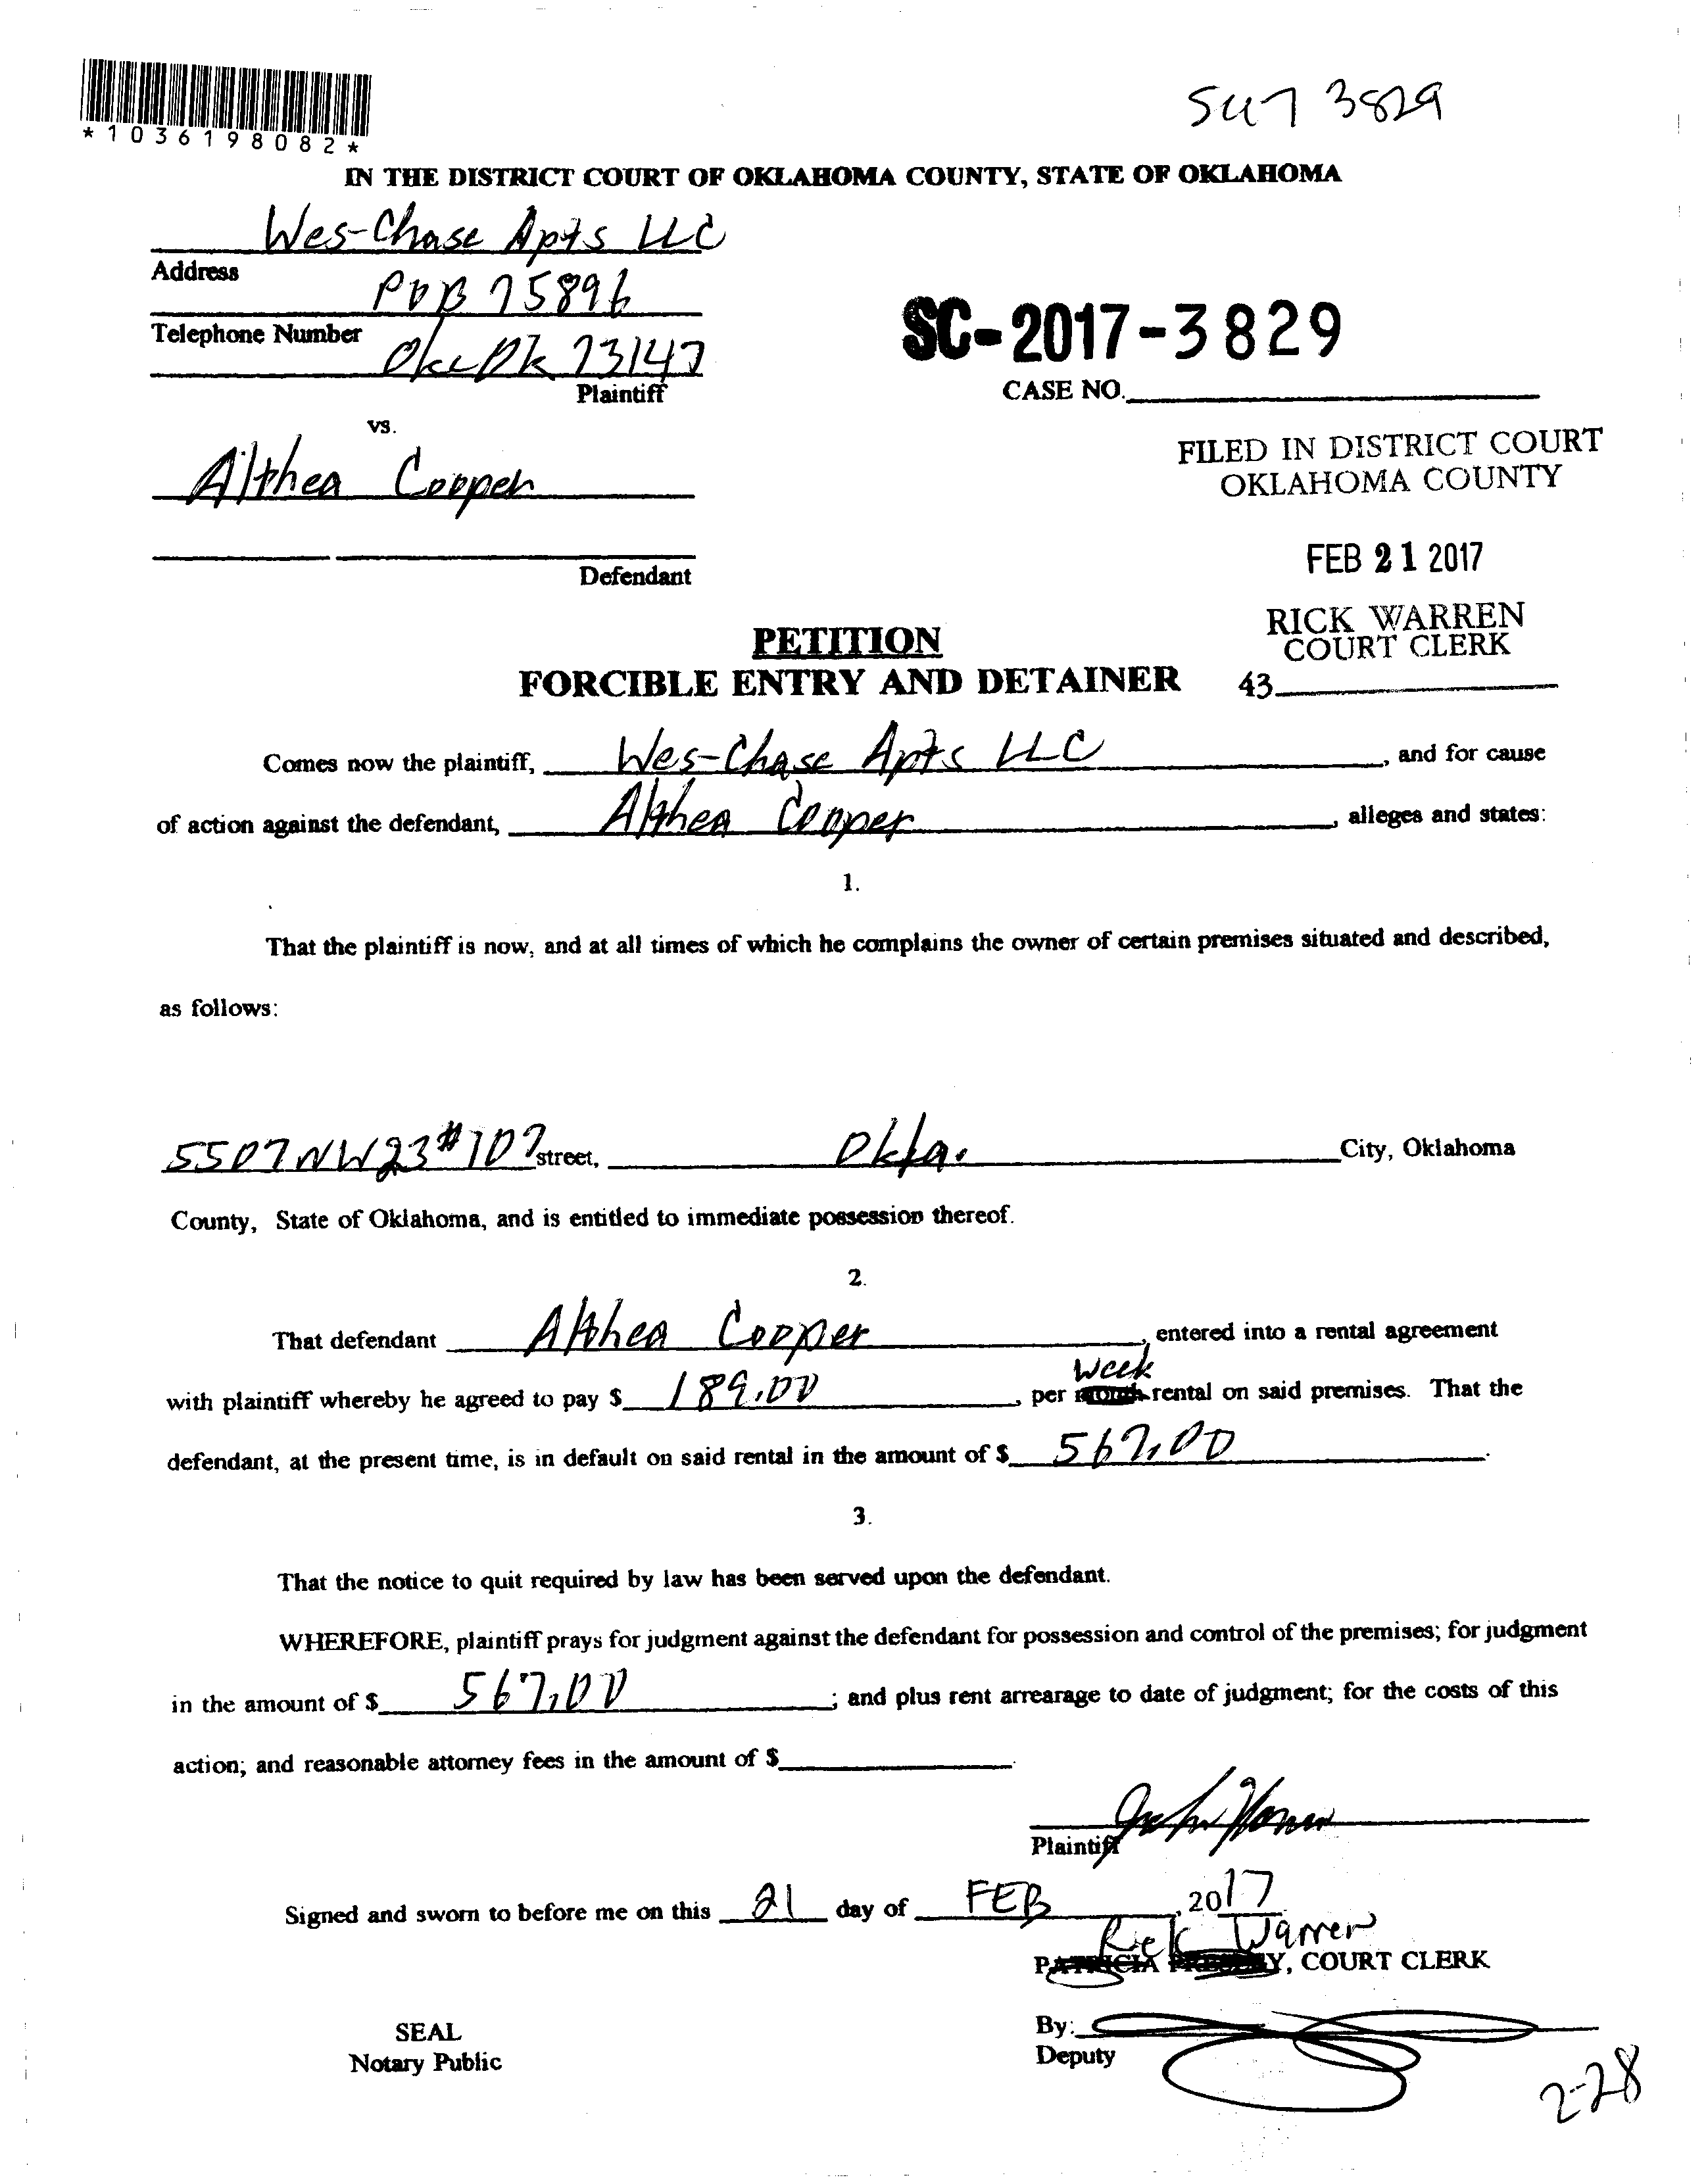 SC17 3829
*1036198082*
IN THE DISTRICT COURT OF OKLAHOMA COUNTY, STATE OF OKLAHOMA
Wes-Chase Apts LLC
Address
POB 75896
Telephone Number
Okc Ok 73147
Plaintiff
SC-2017-3829
CASE NO.
vs.
Althea Cooper
FILED IN DISTRICT COURT
OKLAHOMA COUNTY
FEB 21 2017
Defendant
RICK WARREN
COURT CLERK
43
PETITION
FORCIBLE ENTRY AND DETAINER
Comes now the plaintiff, Wes-Chase Apts LLC, and for cause
of action against the defendant, Althea Cooper, alleges and states:
1.
That the plaintiff is now, and at all times of which he complains the owner of certain premises situated and described,
as follows:
5507 NW 23 #107 street, Okla. City, Oklahoma
County, State of Oklahoma, and is entitled to immediate possession thereof.
2.
That defendant Althea Cooper, entered into a rental agreement
Week
with plaintiff whereby he agreed to pay $ 189.00, per month rental on said premises. That the
defendant, at the present time, is in default on said rental in the amount of $ 567.00.
3.
That the notice to quit required by law has been served upon the defendant.
WHEREFORE, plaintiff prays for judgment against the defendant for possession and control of the premises; for judgment
in the amount of $ 567.00; and plus rent arrearage to date of judgment; for the costs of this
action; and reasonable attorney fees in the amount of $ .
Plaintiff
Signed and sworn to before me on this 21 day of FEB, 2017
Rick Warren
PATRICIA PRESLEY, COURT CLERK
SEAL
Notary Public
By:
Deputy
2-28